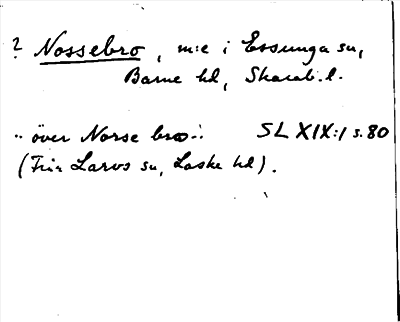 ? Nossebro, m:e i Essunga sn,
Barne hd, Skarab. l.
.. över Norse bro ..   SL XIX:1 s. 80
(Från Larvs sn, Laske hd).